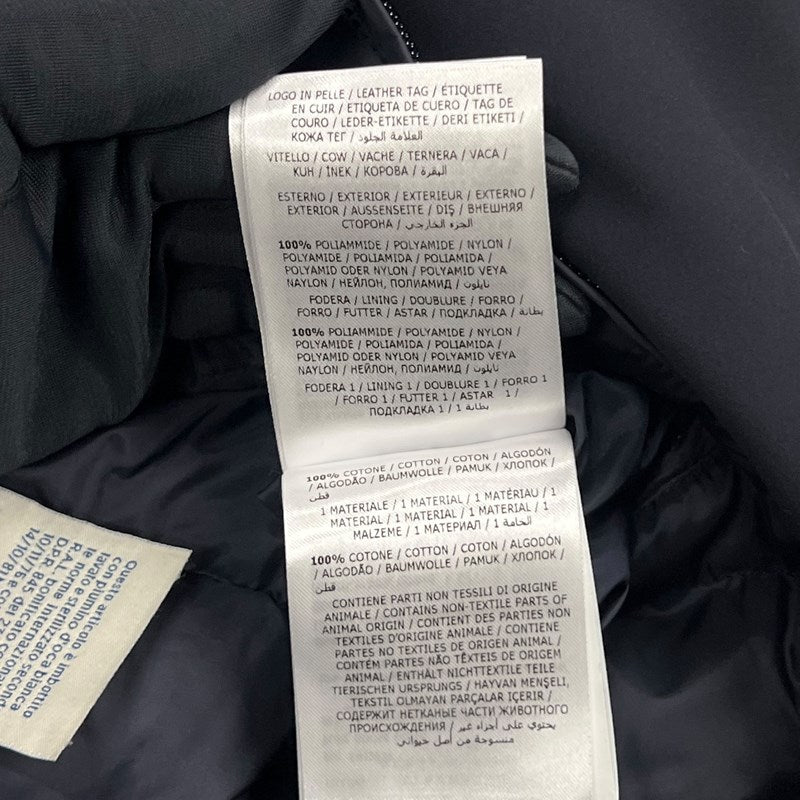 LOGO IN PELLE / LEATHER TAG / ÉTIQUETTE
EN CUIR / ETIQUETA DE CUERO / TAG DE
COURO / LEDER-ETIKETTE / DERI ETIKETI /
КОЖА ТЕГ / العلامة الجلود
VITELLO / COW / VACHE / TERNERA / VACA /
KUH / İNEK / КОРОВА / البقرة
ESTERNO / EXTERIOR / EXTERIEUR / EXTERNO /
EXTERIOR / AUSSENSEITE / DIŞ / ВНЕШНЯЯ
СТОРОНА / الجزء الخارجي
100% POLIAMMIDE / POLYAMIDE / NYLON /
POLYAMIDE / POLIAMIDA / POLIAMIDA /
POLYAMID ODER NYLON / POLYAMID VEYA
NAYLON / НЕЙЛОН, ПОЛИАМИД / نايلون
FODERA / LINING / DOUBLURE / FORRO /
FORRO / FUTTER / ASTAR / ПОДКЛАДКА / بطانة
100% POLIAMMIDE / POLYAMIDE / NYLON /
POLYAMIDE / POLIAMIDA / POLIAMIDA /
POLYAMID ODER NYLON / POLYAMID VEYA
NAYLON / НЕЙЛОН, ПОЛИАМИД / نايلون
FODERA 1 / LINING 1 / DOUBLURE 1 / FORRO 1
/ FORRO 1 / FUTTER 1 / ASTAR 1 /
ПОДКЛАДКА 1 / بطانة 1
100% COTONE / COTTON / COTON / ALGODÓN
/ ALGODÃO / BAUMWOLLE / PAMUK / ХЛОПОК /
قطن
1 MATERIALE / 1 MATERIAL / 1 MATÉRIAU / 1
MATERIAL / 1 MATERIAL / 1 MATERIAL / 1
MALZEME / 1 МАТЕРИАЛ / 1 الخامة
100% COTONE / COTTON / COTON / ALGODÓN
/ ALGODÃO / BAUMWOLLE / PAMUK / ХЛОПОК /
قطن
CONTIENE PARTI NON TESSILI DI ORIGINE
ANIMALE / CONTAINS NON-TEXTILE PARTS OF
ANIMAL ORIGIN / CONTIENT DES PARTIES NON
TEXTILES D'ORIGINE ANIMALE / CONTIENE
PARTES NO TEXTILES DE ORIGEN ANIMAL /
CONTÉM PARTES NÃO TÊXTEIS DE ORIGEM
ANIMAL / ENTHÄLT NICHTTEXTILE TEILE
TIERISCHEN URSPRUNGS / HAYVAN MENŞELİ,
TEKSTIL OLMAYAN PARÇALAR IÇERIR /
СОДЕРЖИТ НЕТКАНЫЕ ЧАСТИ ЖИВОТНОГО
ПРОИСХОЖДЕНИЯ / يحتوي على أجزاء غير
منسوجة من أصل حيواني
Questo articolo è imbottito
con piumino d'oca bianca
lavato e sterilizzato second
le norme internaziona
R.A.L. bonificato
DPR 845 de
10/11/76
14/10/8